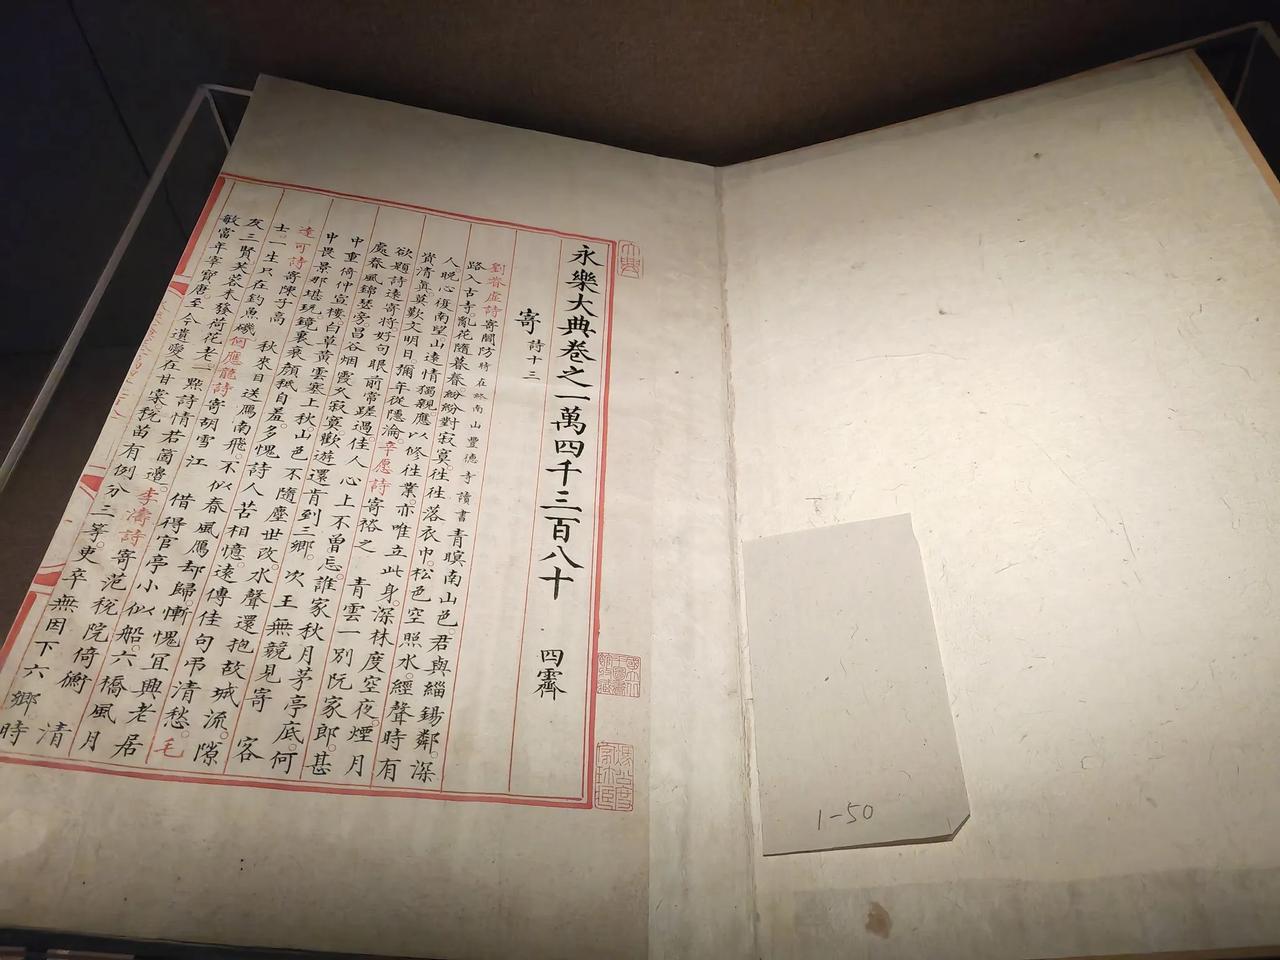 永樂大典卷之一萬四千三百八十 四霽
寄 詩十三
劉眘虛詩寄閻防 時在終南山豐德寺讀書 青暝南山色。君與緇錫鄰。深
路入古寺。亂花隨暮春。紛紛對寂寞。往往落衣巾。松色空照水。經聲時有
人。晚心復南望。山遠情獨親。應以修往業。亦唯立此身。深林度空夜。煙月
資清真。莫歎文明日。彌年從隱淪。辛愿詩寄裕之 青雲一別阮家郎。甚
欲題詩遠寄將。好句眼前常蹉過。佳人心上不曾忘。誰家秋月茅亭底。何
處春風錦瑟旁。昌谷烟霞久寂寞。歡遊還肯到三鄉。次王無競見寄 客
中重倚仲宣樓。白草黃雲塞上秋。山色不隨塵世改。水聲還抱故城流。隙
中畏景那堪玩。鏡裏衰顏秪自羞。多愧詩人苦相憶。遠傳佳句弔清愁。毛
達可詩寄陳子高 秋來目送鴈南飛。不似春風鴈却歸。慚愧宜興老居
士。一生只在釣魚磯。何應龍詩寄胡雪江 借得官亭小似船。六橋風月
友三賢。芙蓉未發荷花老。一點詩情若箇邊。李濤詩寄范稅院倚衡 清
敏當年宰寶唐。至今遺愛在甘棠。稅苗有例分三等。吏卒無因下六鄉。時
1-50